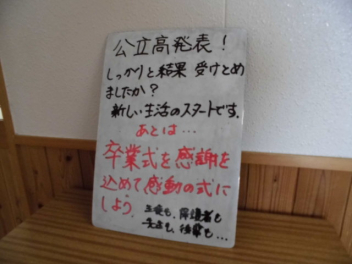 公立高発表！
しっかりと結果 受けとめ
ましたか？
新しい生活のスタートです。
あとは…
卒業式を感謝を
込めて感動の式に
しよう。
保護者も
先生も、後輩も…